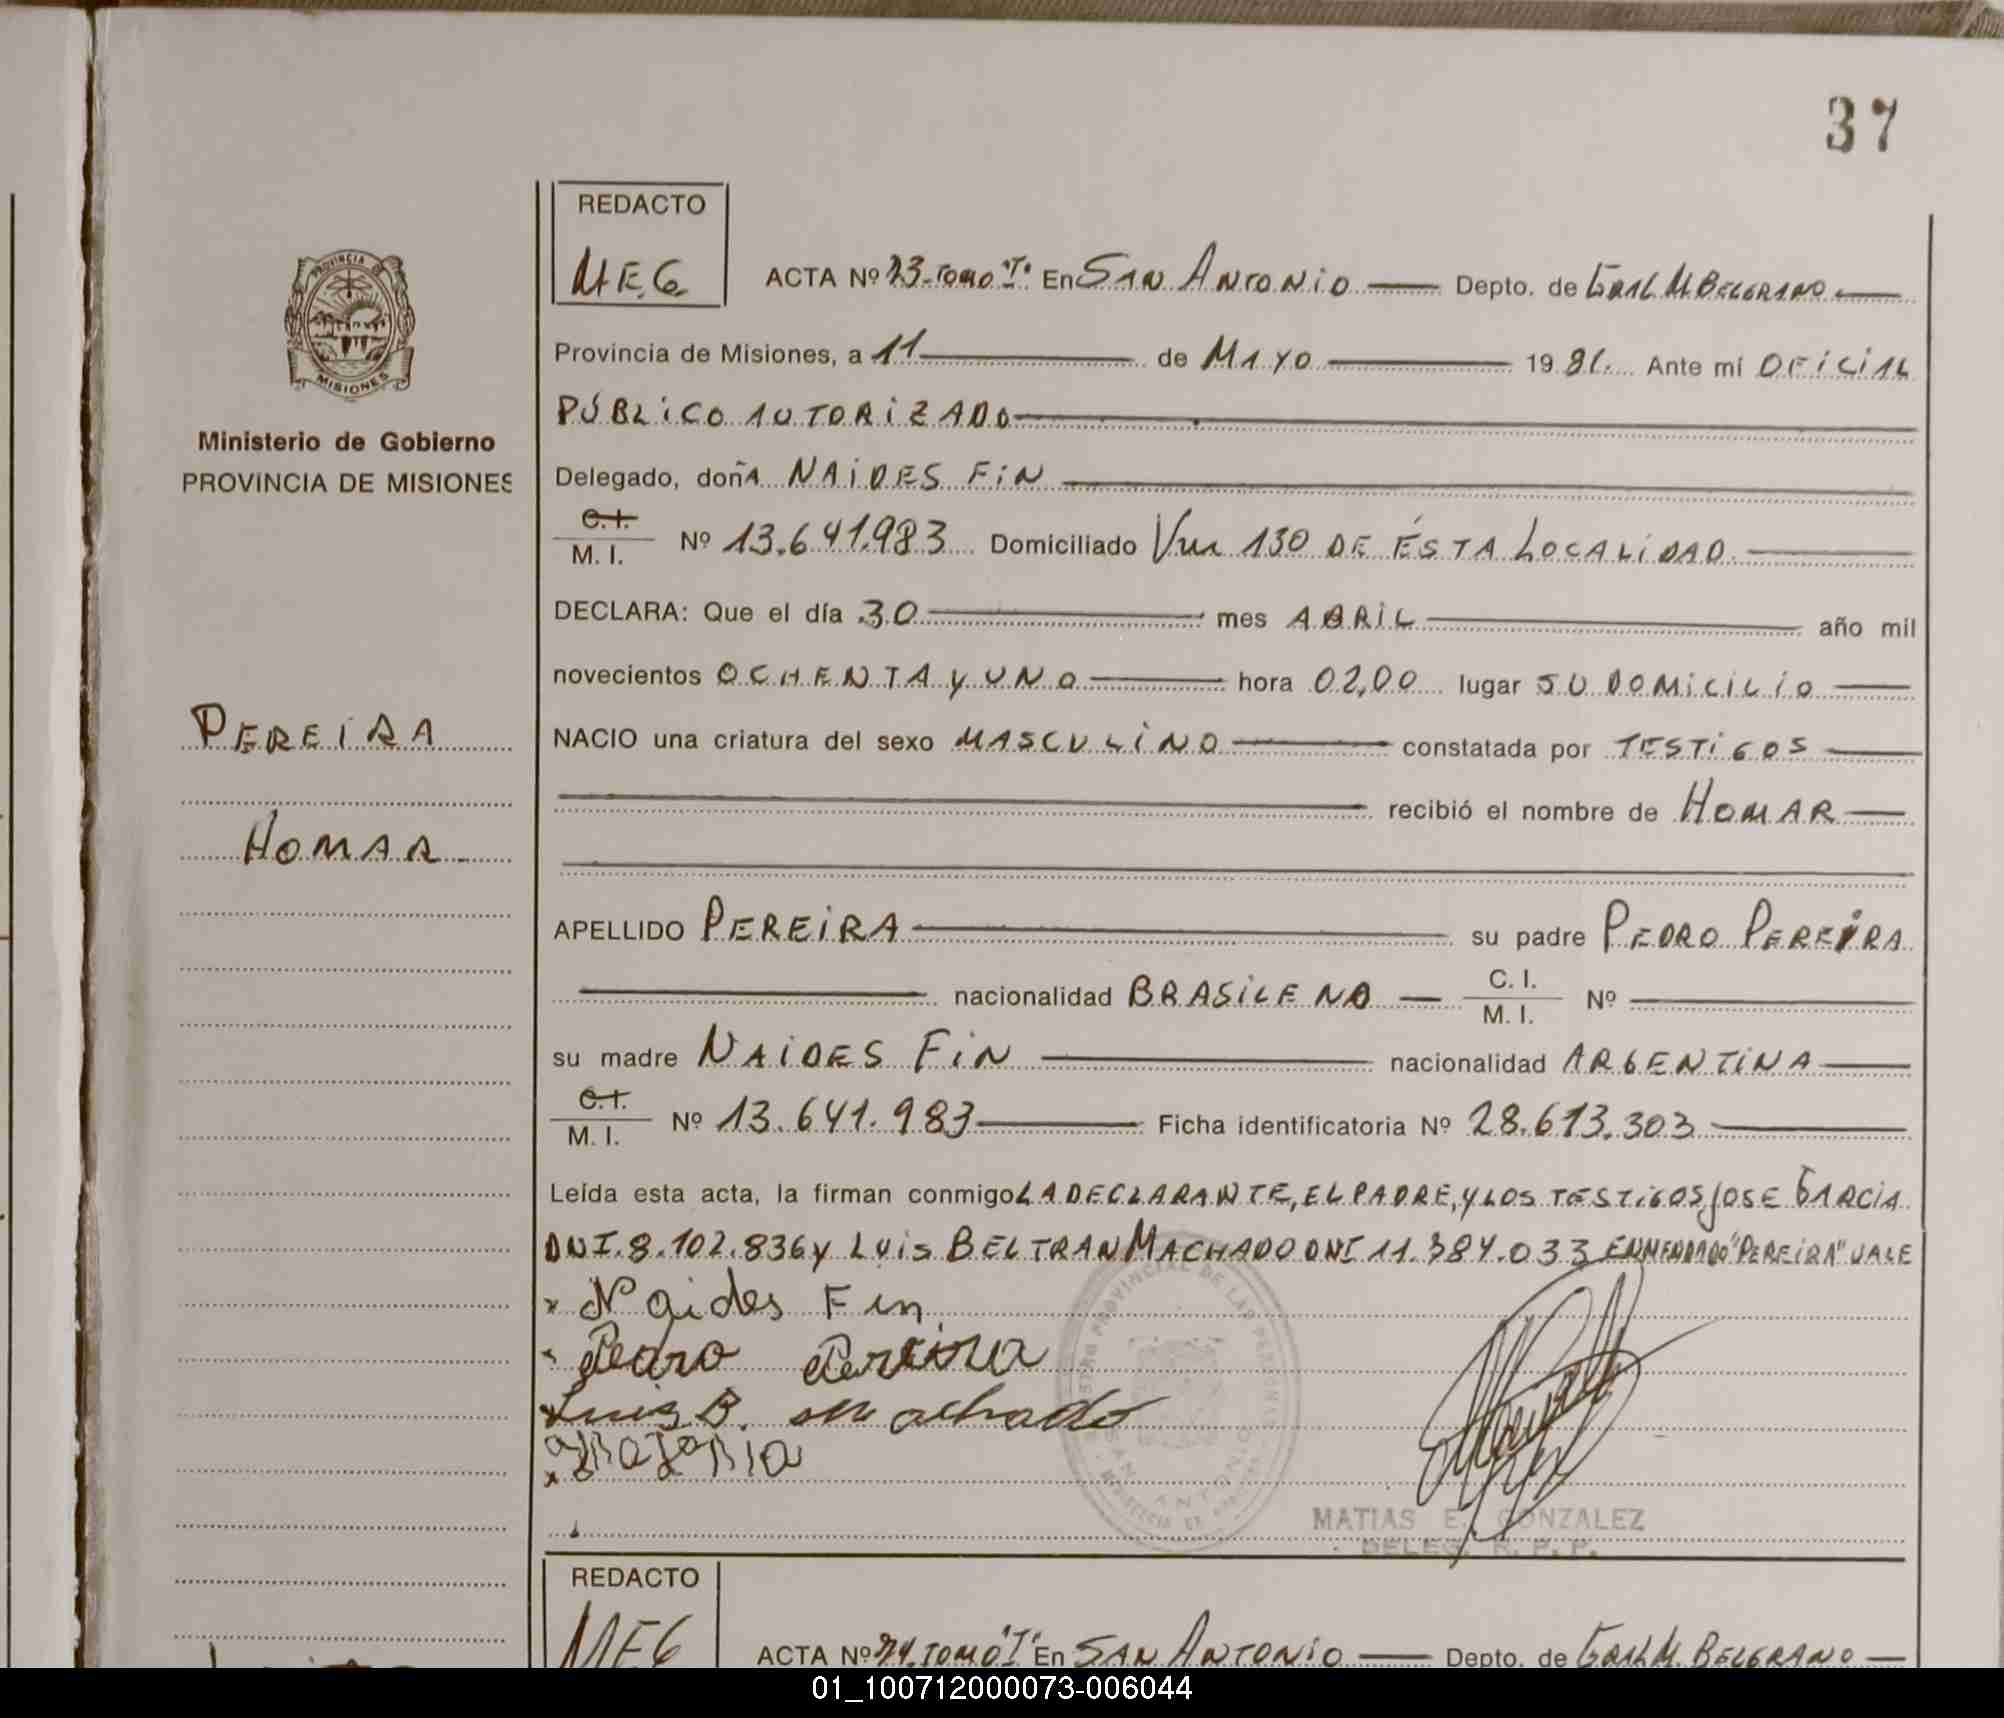 37
REDACTO
M.E.G.
ACTA Nº 73-TOMO "I" En SAN ANTONIO Depto. de GRAL M. BELGRANO
Provincia de Misiones, a 11 de MAYO 1981. Ante mí OFICIAL
PÚBLICO AUTORIZADO
Delegado, doñA NAIDES FIN
C.I.
M. I. Nº 13.641.983 Domiciliado Vnn 130 DE ÉSTA LOCALIDAD
DECLARA: Que el día 30 mes ABRIL año mil
novecientos OCHENTA Y UNO hora 02,00 lugar SU DOMICILIO
NACIO una criatura del sexo MASCULINO constatada por TESTIGOS
recibió el nombre de HOMAR
APELLIDO PEREIRA su padre PEDRO PEREIRA
nacionalidad BRASILENO C. I.
M. I. Nº
su madre NAIDES FIN nacionalidad ARGENTINA
C.I.
M. I. Nº 13.641.983 Ficha identificatoria Nº 28.613.303
Leída esta acta, la firman conmigo LA DECLARANTE, EL PADRE, Y LOS TESTIGOS JOSE GARCIA
DNI.8.102.836 y LUIS BELTRAN MACHADO DNI 11.384.033 ENMENDADO "PEREIRA" VALE
Naides Fin
Pedro Pereira
Luis B. Machado
MATIAS E. GONZALEZ
DELEG. R. P. P.
PROVINCIA DE
MISIONES
Ministerio de Gobierno
PROVINCIA DE MISIONES
PEREIRA
HOMAR
REDACTO
MEG
ACTA Nº 74. TOMO "I" En SAN ANTONIO Depto. de GRAL M. BELGRANO
01_100712000073-006044